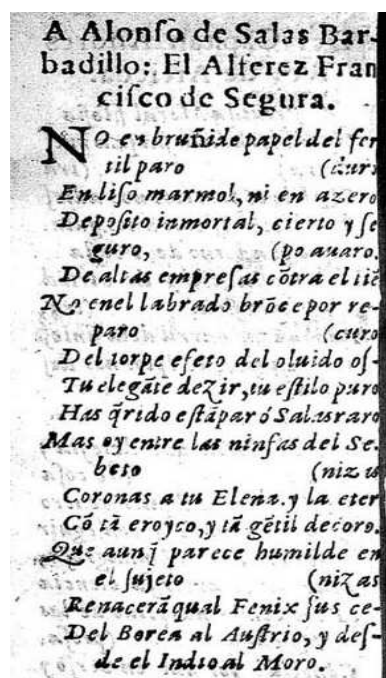 A Alonſo de Salas Bar-
badillo: El Alferez Fran
ciſco de Segura.
NO en bruñido papel del fer
til paro (duro
En liſo marmol, ni en azero
Depoſito inmortal, cierto y ſe
guro, (po auaro.
De altas empreſas cõtra el tiẽ
No enel labrado brõce por re-
paro (curo
Del torpe efeto del oluido oſ-
Tu elegãte dezir, tu eſtilo puro
Has q̃rido eſtãpar ó Salas raro
Mas oy entre las ninfas del Se-
beto (nizas
Coronas a tu Elena. y la eter
Cõ tã eroyco, y tã gẽtil decoro.
Que aunq̃ parece humilde en
el ſujeto (nizas
Renacerã qual Fenix ſus ce-
Del Borea al Auſtrio, y deſ-
de el Indio al Moro.